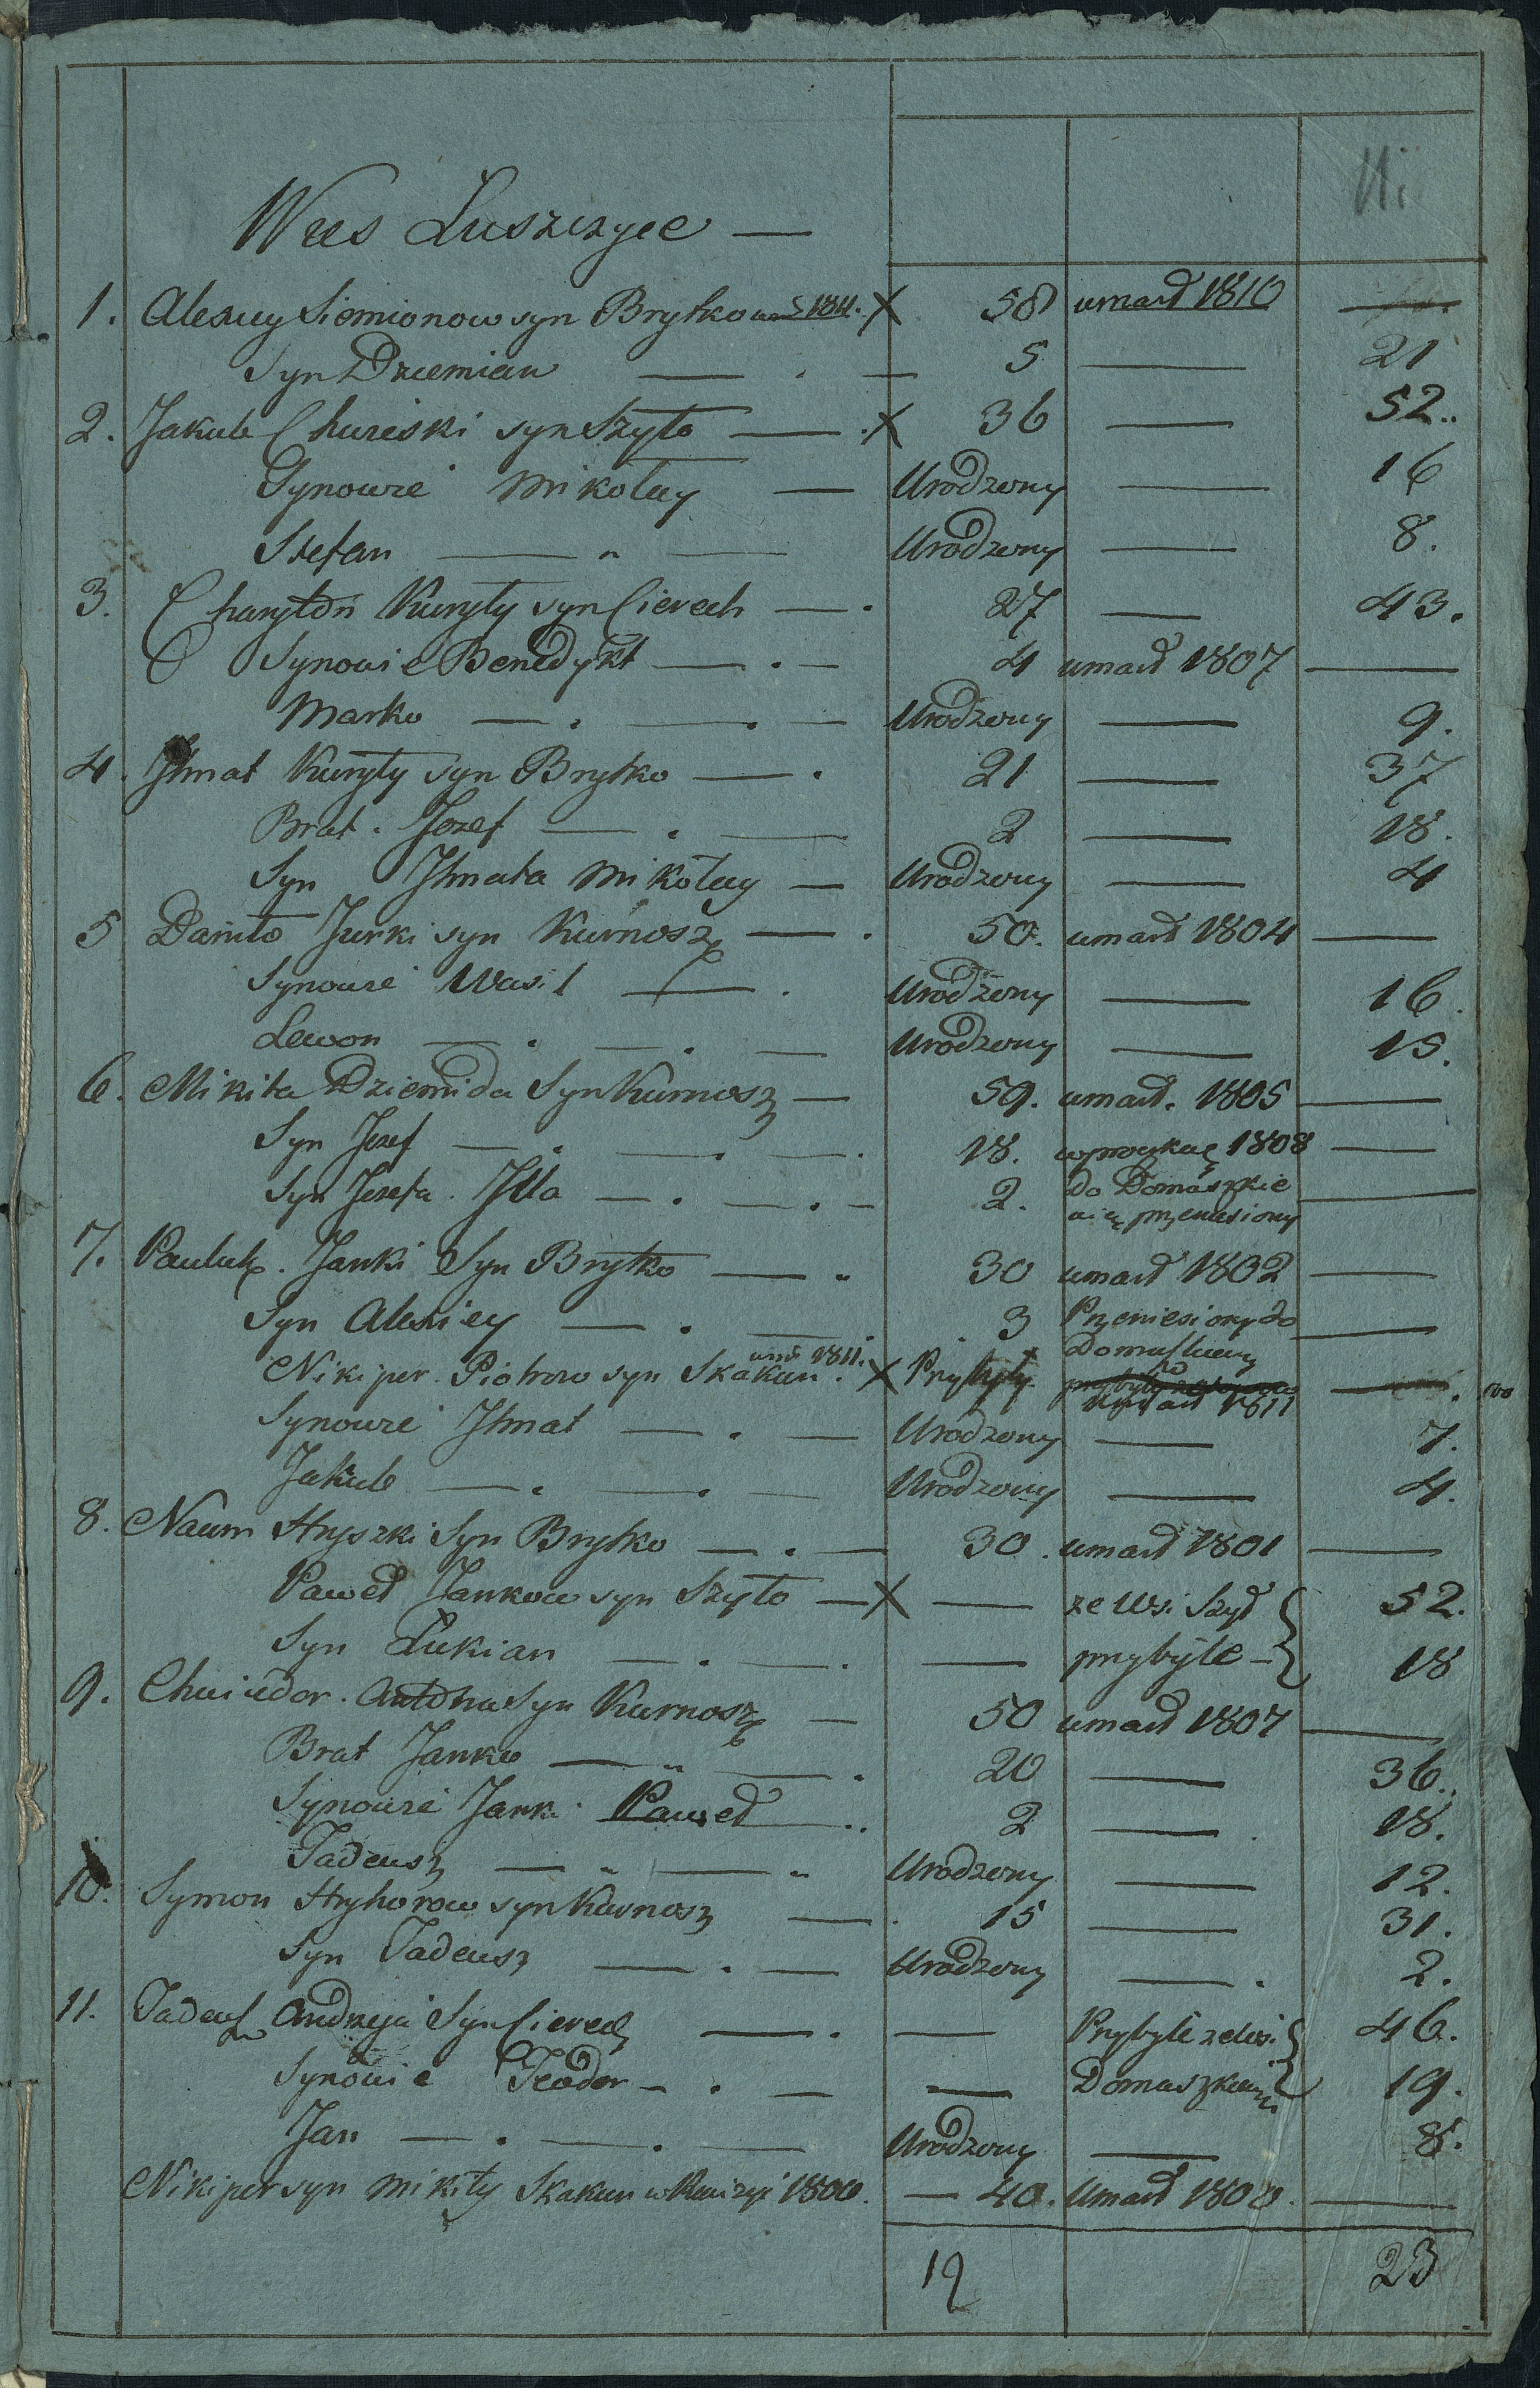 11.
Wies Łuszczyce —
1. Alexiey Siemionow syn Brytko um: 1811. X 58 umarł 1810 —
Syn Dziemian — . — 5 — 21
2. Jakub Chwieśki syn Szyło — . X 36 — 52..
Synowie Mikołay — Urodzony — 16
Stefan — „ — Urodzony — 8.
3. Charyton Kuryły syn Cierech — . 27 — 43.
Synowie Benedykt — . — 4 umarł 1807 —
Marko — . — . — Urodzony — 9.
4. Jhnat Kuryły syn Brytko — . 21 — 37
Brat . Jozef — . — 2 — 18.
Syn Jhnata Mikołay — Urodzony — 4
5 Daniło Jurki syn Kurnosz — . 50. umarł 1804 —
Synowie Wasil — . Urodzony — 16.
Lewon — . — . — Urodzony — 15.
6. Mikita Dziemida Syn Kurnosz — 59. umarł. 1805 —
Syn Jozef — . — . — . 18. 1808 —
Syn Jozefa . Jlla — . — . — 2. do Domaszkie
wicz przeniesiony —
7. Pauluk . Janki Syn Brytko — „ 30 umarł 1802 —
Syn Alexiey — . — . 3 Przeniesiony do
Domaszkiewicz —
Nikiper . Piotrow syn Skakun um: 1811. X Przybyły umarł 1811 — .
Synowie Jhnat — . — Urodzony — 7.
Jakub — . — . — Urodzony — 4.
8. Naum Hryszki Syn Brytko — . — 30 . umarł 1801 —
Paweł Jankow syn Szyło — X — ze Wsi Szył 52.
Syn Łukian — . — . — przybyłe — 18
9. Chwiedor . Antona Syn Kurnosz — 50 umarł 1807 —
Brat Janko — „ — . 20 — 36..
Synowie Janki Paweł — .. 2 — . 18.
Tadeusz — „ — „ Urodzony — 12.
10. Symon Hryhorow syn Kurnosz — . 15 — 31.
Syn Tadeusz — . — Urodzony — . 2.
11. Tadeusz Andrzeja Syn Cierech — . — Przybyłe ze Wsi 46.
Synowie Teodor — . — — Domaszkiewicz 19.
Jan — . — . — Urodzony — 8.
Nikiper syn Mikity Skakun 1800. — 40. Umarł 1800. —
19 23